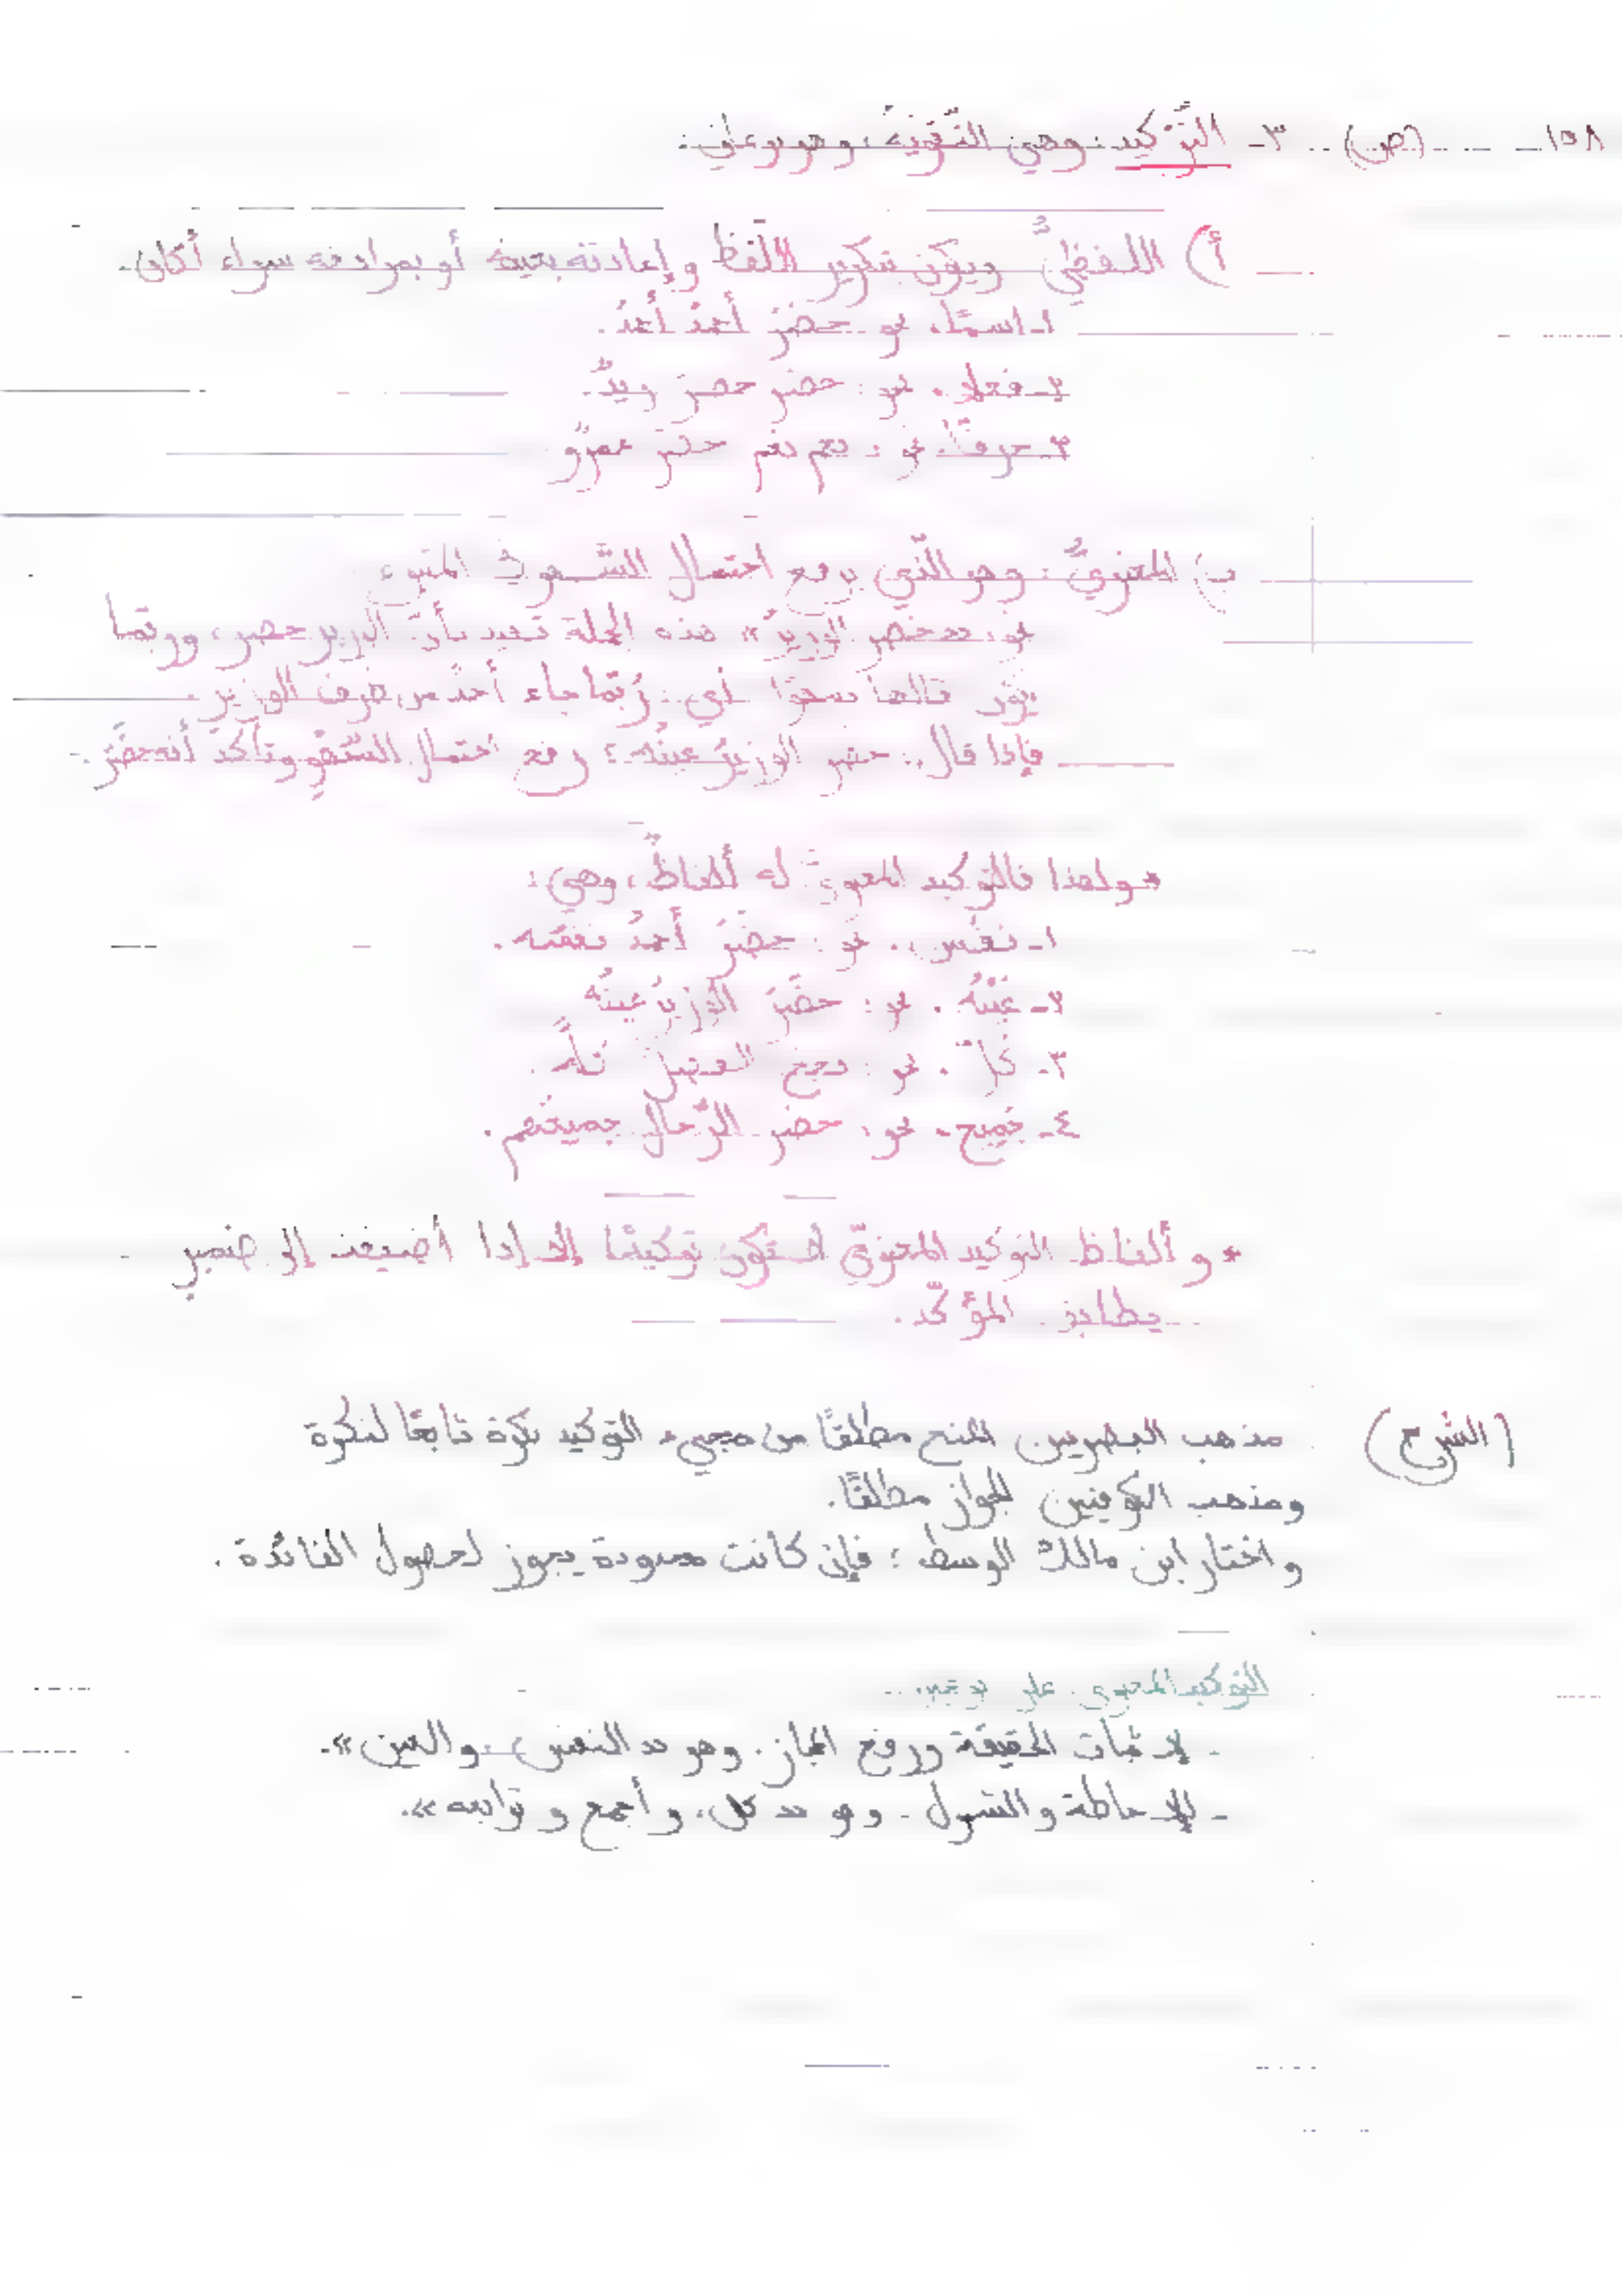 ١٥٨ (ص) ٣- التَّوْكيد: وهي التَّقْوِيَة، وهو نوعان:
أ) اللفظيُّ ويكون بتكرير اللَّفظ وإعادته بعينه أو بمرادفه سواء أكان.
١- اسمًا، نحو حضَرَ أحمدُ أحمدُ.
٢- فعلا. نحو: حضر حضرَ زيدٌ.
٣- حرفًا. نحو: نعم نعم حضر عمرٌو
ب) المعنويُّ: وهو الّذي يرفع احتمال السَّهو في المتبوع
نحو: «حضر الوزيرُ» هذه الجملة تفيد بأنّ الوزير حضر، وربّما
يكون قالها سهوًا أي: رُبّما جاء أحدٌ من طرف الوزير.
فإذا قال: حضر الوزيرُ عينُه؛ رفع احتمال السّهوِ وتأكّدَ أنه حضَرَ.
* ولهذا فالتوكيد المعنويّ له ألفاظٌ، وهي:
١- نفْس. نحو: حضَرَ أحمدُ نفسُه.
٢- عَيْنُه. نحو: حضَرَ الوزيرُ عينُه
٣- كلّ. نحو: نجح الفصلُ كلُّه.
٤- جَمِيع. نحو: حضر الرِّجال جميعُهم.
* وألفاظ التوكيد المعنويّ لا تكون توكيدًا إلا إذا أضيفت إلى ضمير
يطابق المؤكّد.
(الشرح) مذهب البصريين المنع مطلقًا من مجيء التوكيد نكرة تابعًا لنكرة
ومذهب الكوفيين الجواز مطلقًا.
واختار ابن مالك الوسط؛ فإن كانت محدودة يجوز لحصول الفائدة.
التوكيد المعنوي على نوعين..
- لإثبات الحقيقة ورفع المجاز. وهو «النفس، والعين».
- للإحاطة والشمول. وهو «كل، وأجمع وتوابعه».